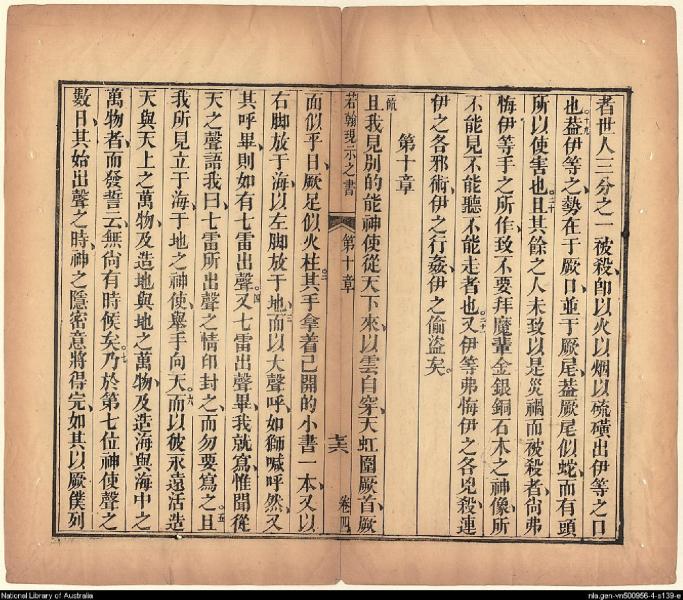 者世人三分之一被殺、卽以火以烟以硫磺出伊等之口
也。十九葢伊等之勢在于厥口、並于厥尾、葢厥尾似蛇、而有頭
所以使害也。二十且其餘之人未致以是災禍而被殺者、尚弗
悔伊等手之所作、致不要拜魔輩金銀銅石木之神像、所
不能見不能聽不能走者也。二十一又伊等弗悔伊之各兇殺、連
伊之各邪術、伊之行姦、伊之偷盜矣。
第十章
且我見別的能神使從天下來、以雲自穿、天虹圍厥首、厥
若翰現示之書 第十章 卷四
面似乎日、厥足似火柱。二其手拿着己開的小書一本、又以
右脚放于海、以左脚放于地。三而以大聲呼、如獅喊呼然、又
其呼畢、則如有七雷出聲。四又七雷出聲畢、我就寫、惟聞從
天之聲語我曰、七雷所出聲之情印封之、而勿要寫之。五且
我所見立于海、于地之神使、舉手向天。六而以彼永遠活造
天與天上之萬物、及造地與地之萬物、及造海與海中之
萬物者、而發誓云、無尚有時候矣。七乃於第七位神使聲之
數日、其始出聲之時、神之隱密意將得完、如其以厥僕列
National Library of Australia
nla.gen-vn500956-4-s139-e